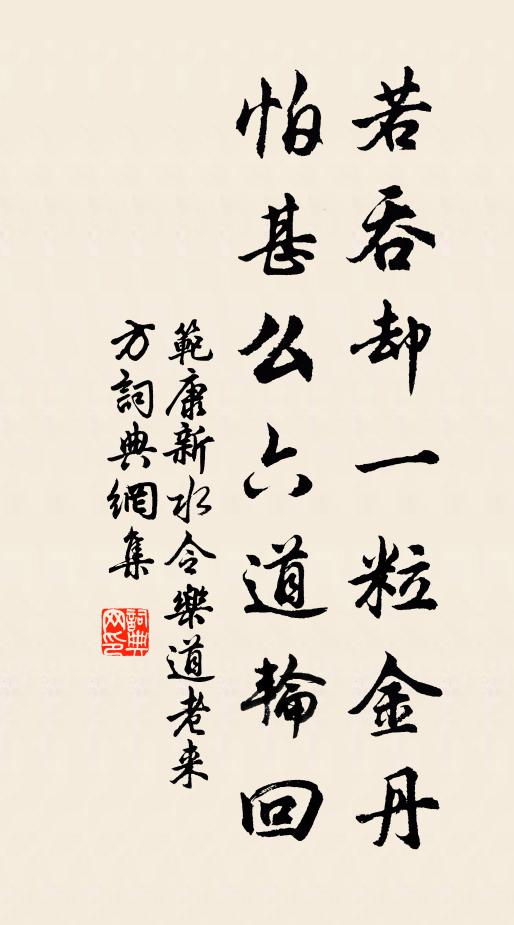 若吞却一粒金丹
怕甚么六道輪回
範康新水令樂道老来
方詞典網集
詞典
网印